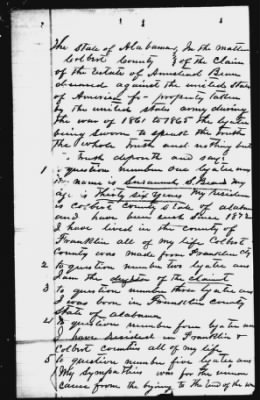 The State of Alabama, In the matter
Colbert County } of the Claim
of the Estate of Armstead Bean
deceased against the united States
of America for property taken
by the united states army during
the war of 1861 to 1865 the
being sworn to speak the truth
the whole truth and nothing but
truth deposeth and says
1 question number one
name is S. Bean My
age is Thirty six years My residence
is Colbert county State of alabama
and have been such since 1872
I have lived in the county of
Franklin all of my life Colbert
County was made from Franklin Cty
2 to question number two
I am the of the claimt
3 to question number three
I was born in Franklin County
State of alabama
4 To question number four
I have resided in Franklin &
Colbert counties all of my life
5 to question number five
My sympathies was for the union
cause from the to the End of the war